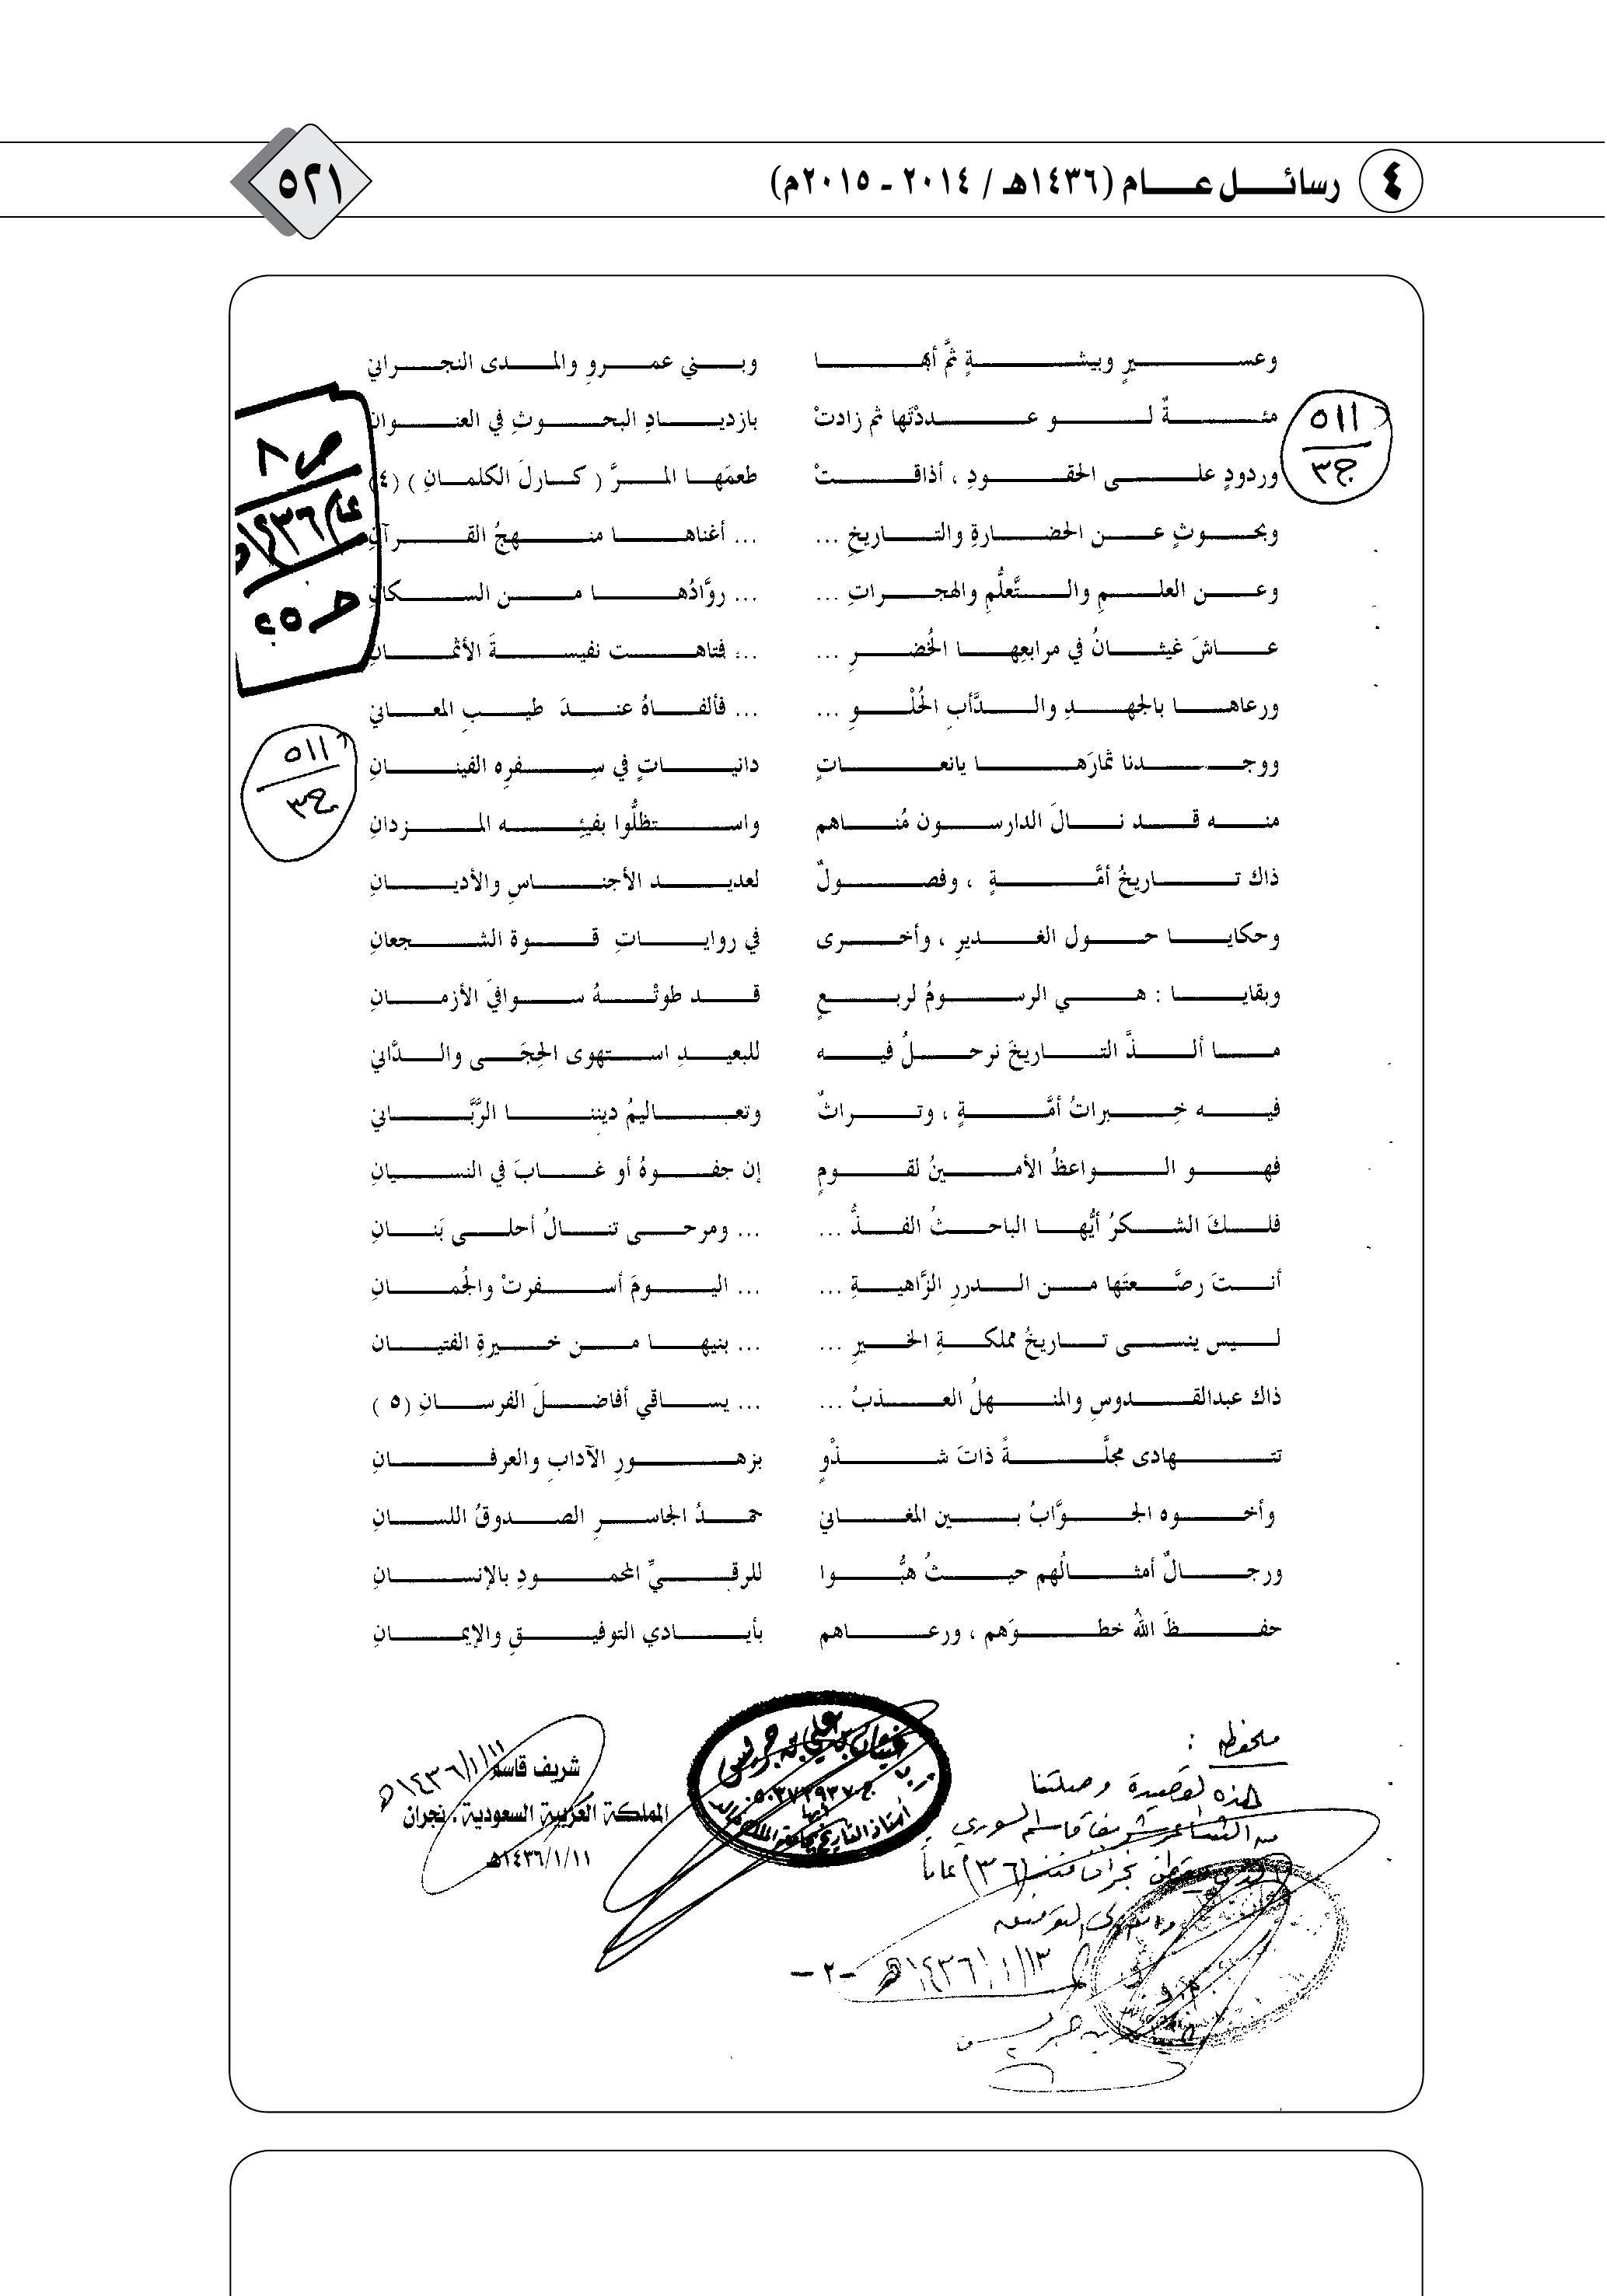 ٤ رسائل عام (١٤٣٦هـ / ٢٠١٤ - ٢٠١٥م) ٥٢١
وعسيرٍ وبيشةٍ ثمَّ أبها وبني عمروٍ والمدى النجراني
مئةٌ لو عددْتَها ثم زادتْ بازديادِ البحوثِ في العنوانِ
وردودٍ على الحقودِ ، أذاقتْ طعمَها المرَّ ( كارلَ الكلمانِ ) (٤)
وبحوثٍ عن الحضارةِ والتاريخِ ... ... أغناها منهجُ القرآنِ
وعن العلمِ والتَّعلُّمِ والهجراتِ ... ... روَّادُها من السكانِ
عاشَ غيثانُ في مرابعِها الخُضرِ ... ... فتاهت نفيسةَ الأثمانِ
ورعاها بالجهدِ والدَّأبِ الخُلْوِ ... ... فألفاهُ عندَ طيبِ المعاني
ووجدنا ثمارَها يانعاتٍ دانياتٍ في سِفرِه الفينانِ
منه قد نالَ الدارسون مُناهم واستظلُّوا بفيئِه المزدانِ
ذاك تاريخُ أمَّةٍ ، وفصولٌ لعديد الأجناسِ والأديانِ
وحكايا حول الغديرِ ، وأخرى في رواياتِ قوة الشجعانِ
وبقايا : هي الرسومُ لربعٍ قد طوتْهُ سوافيَ الأزمانِ
ما ألذَّ التاريخَ نرحلُ فيه للبعيدِ استهوى الحِجَى والدَّاني
فيه خِبراتُ أمَّةٍ ، وتراثٌ وتعاليمُ ديننِا الرَّبَّاني
فهو الواعظُ الأمينُ لقومٍ إن جفوهُ أو غابَ في النسيانِ
فلكَ الشكرُ أيُّها الباحثُ الفذُّ ... ... ومرحى تنالُ أحلى بَنانِ
أنتَ رصَّعتَها من الدررِ الزَّاهيةِ ... ... اليومَ أسفرتْ والجُمانِ
ليس ينسى تاريخُ مملكةِ الخيرِ ... ... بنيها من خيرةِ الفتيان
ذاك عبدالقدوسِ والمنهلُ العذبُ ... ... يساقي أفاضلَ الفرسانِ (٥ )
تتهادى مجلَّةً ذاتَ شذْوٍ بزهورِ الآدابِ والعرفانِ
وأخوه الجوَّابُ بين المغاني حمدُ الجاسرِ الصدوقُ اللسانِ
ورجالٌ أمثالُهم حيثُ هبُّوا للرقيِّ المحمودِ بالإنسانِ
حفظَ اللهُ خطوَهم ، ورعاهم بأيادي التوفيقِ والإيمانِ
٥١١
ج٣
ص ٨
عام ١٤٣٦هـ
٥١١
ج٣
شريف قاسم
١٤٣٦/١/١١هـ
المملكة العربية السعودية . نجران
١٤٣٦/١/١١هـ
غيثان بن علي بن جريس
أبها
أستاذ التاريخ بجامعة الملك خالد
ملحوظه :
هذه القصيدة وصلتنا
من الشاعر شريف قاسم السوري
الذي يقطن نجران منذ (٣٦) عاماً
التوفيق
١٤٣٦/١/١٣هـ
بن جريس
-٢-